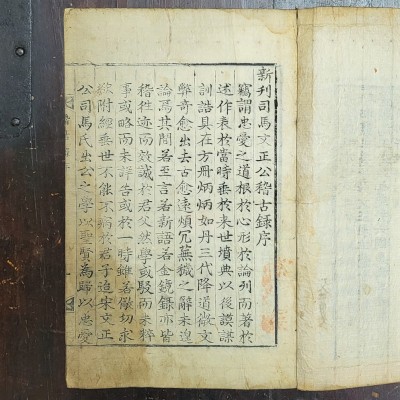 新刊司馬文正公稽古錄序
竊謂忠愛之道根於心形於論列而著於
述作表於當時垂於來世墳典以後謨謀
訓誥具在方冊炳炳如丹三代降道微文
弊奇愈出去古愈遠煩冗蕪穢之辭未遑
論焉其間若至言若新語若金鏡錄亦皆
稽徃迹而效誠於君父然學或駁而未粹
事或略而未詳告或於一時雖善儆切求
欲附經垂世不能不徧於君子追宋文正
公司馬氏出公之學以聖賢為歸以忠愛